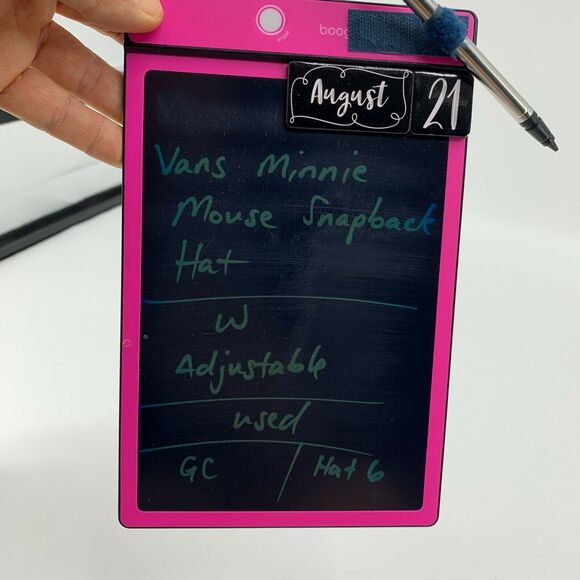 boog
August 21
Vans Minnie
Mouse Snapback
Hat
W
Adjustable
used
GC / Hat 6